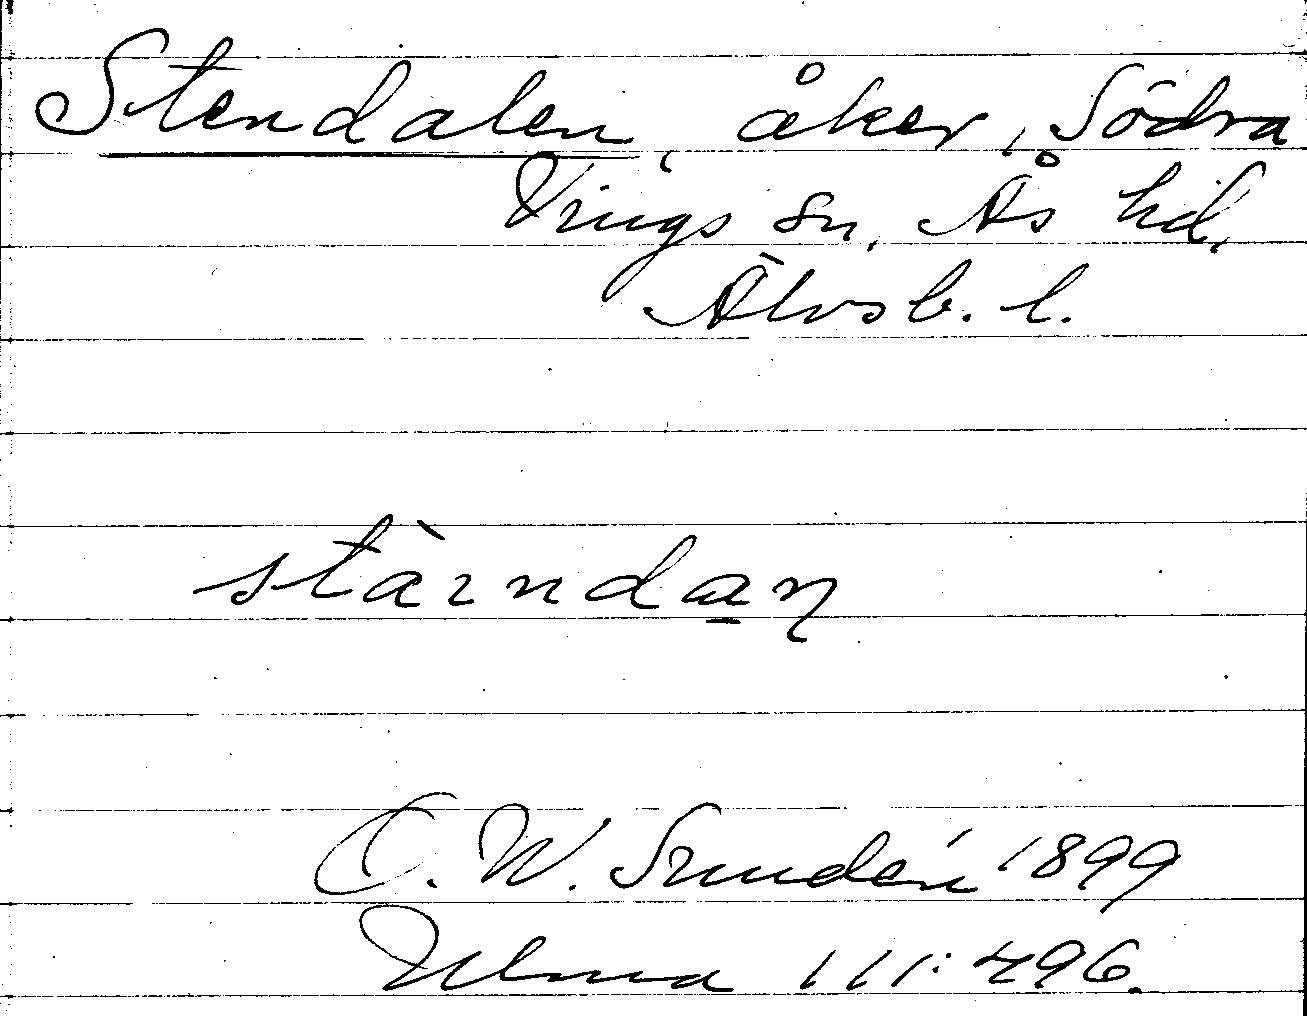 Stendalen, åker, Södra
Vings sn, Ås hd,
Älvsb. l.
stàrndan
O. W. Sundén 1899
Ulma 111:496.